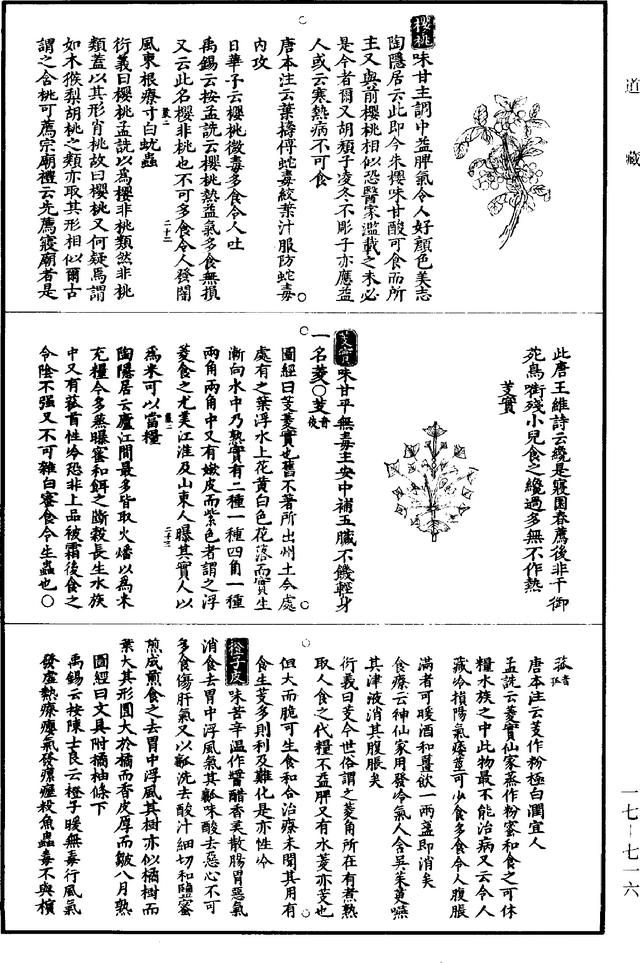 道藏
櫻桃味甘主調中益脾氣令人好顏色美志
陶隱居云此即今朱櫻味甘酸可食而所
主又與前櫻桃相似恐醫家濫載之未必
是今者爾又胡頹子凌冬不彫子亦應益
人或云寒熱病不可食
唐本注云葉擣傅蛇毒絞葉汁服防蛇毒
內攻
日華子云櫻桃微毒多食令人吐
禹錫云按孟詵云櫻桃熱益氣多食無損
又云此名櫻非桃也不可多食令人發闇
風東根療寸白蚘蟲
衍義曰櫻桃孟詵以為櫻非桃類然非桃
類蓋以其形肖桃故曰櫻桃又何疑焉謂
如木猴梨胡桃之類亦取其形相似爾古
謂之含桃可薦宗廟禮云先薦寢廟者是
此唐王維詩云纔是寢園春薦後非干御
苑鳥銜殘小兒食之纔過多無不作熱
芰實
芰實味甘平無毒主安中補五臟不饑輕身
一名菱○芰音伎
圖經曰芰菱實也舊不著所出州土今處
處有之葉浮水上花黃白色花落而實生
漸向水中乃熟實有二種一種四角一種
兩角兩角中又有嫩皮而紫色者謂之浮
菱食之尤美江淮及山東人曝其實人以
為米可以當糧
陶隱居云廬江間最多皆取火燔以為米
充糧今多蒸曝蜜和餌之斷穀長生水族
中又有菰首性冷恐非上品被霜後食之
令陰不强又不可雜白蜜食令生蟲也○
菰音孤
唐本注云芰作粉極白潤宜人
孟詵云菱實仙家蒸作粉蜜和食之可休
糧水族之中此物最不能治病又云令人
藏冷損陽氣痿莖可少食多食令人腹脹
滿者可暖酒和薑飲一兩盞即消矣
食療云神仙家用發冷氣人含吳茱萸嚥
其津液消其腹脹矣
衍義曰芰今世俗謂之菱角所在有煮熟
取人食之代糧不益脾又有水菱亦芰也
但大而脆可生食和合治療未聞其用有
食生芰多則利及難化是亦性冷
橙子皮味苦辛溫作醬醋香美散腸胃惡氣
消食去胃中浮風氣其瓤味酸去惡心不可
多食傷肝氣又以瓤洗去酸汁細切和鹽蜜
煎成煎食之去胃中浮風其樹亦似橘樹而
葉大其形圓大於橘而香皮厚而皺八月熟
圖經曰文具附橘柚條下
禹錫云按陳士良云橙子暖無毒行風氣
發虛熱療癭氣發瘰癧殺魚蟲毒不與檳
一七-七一六